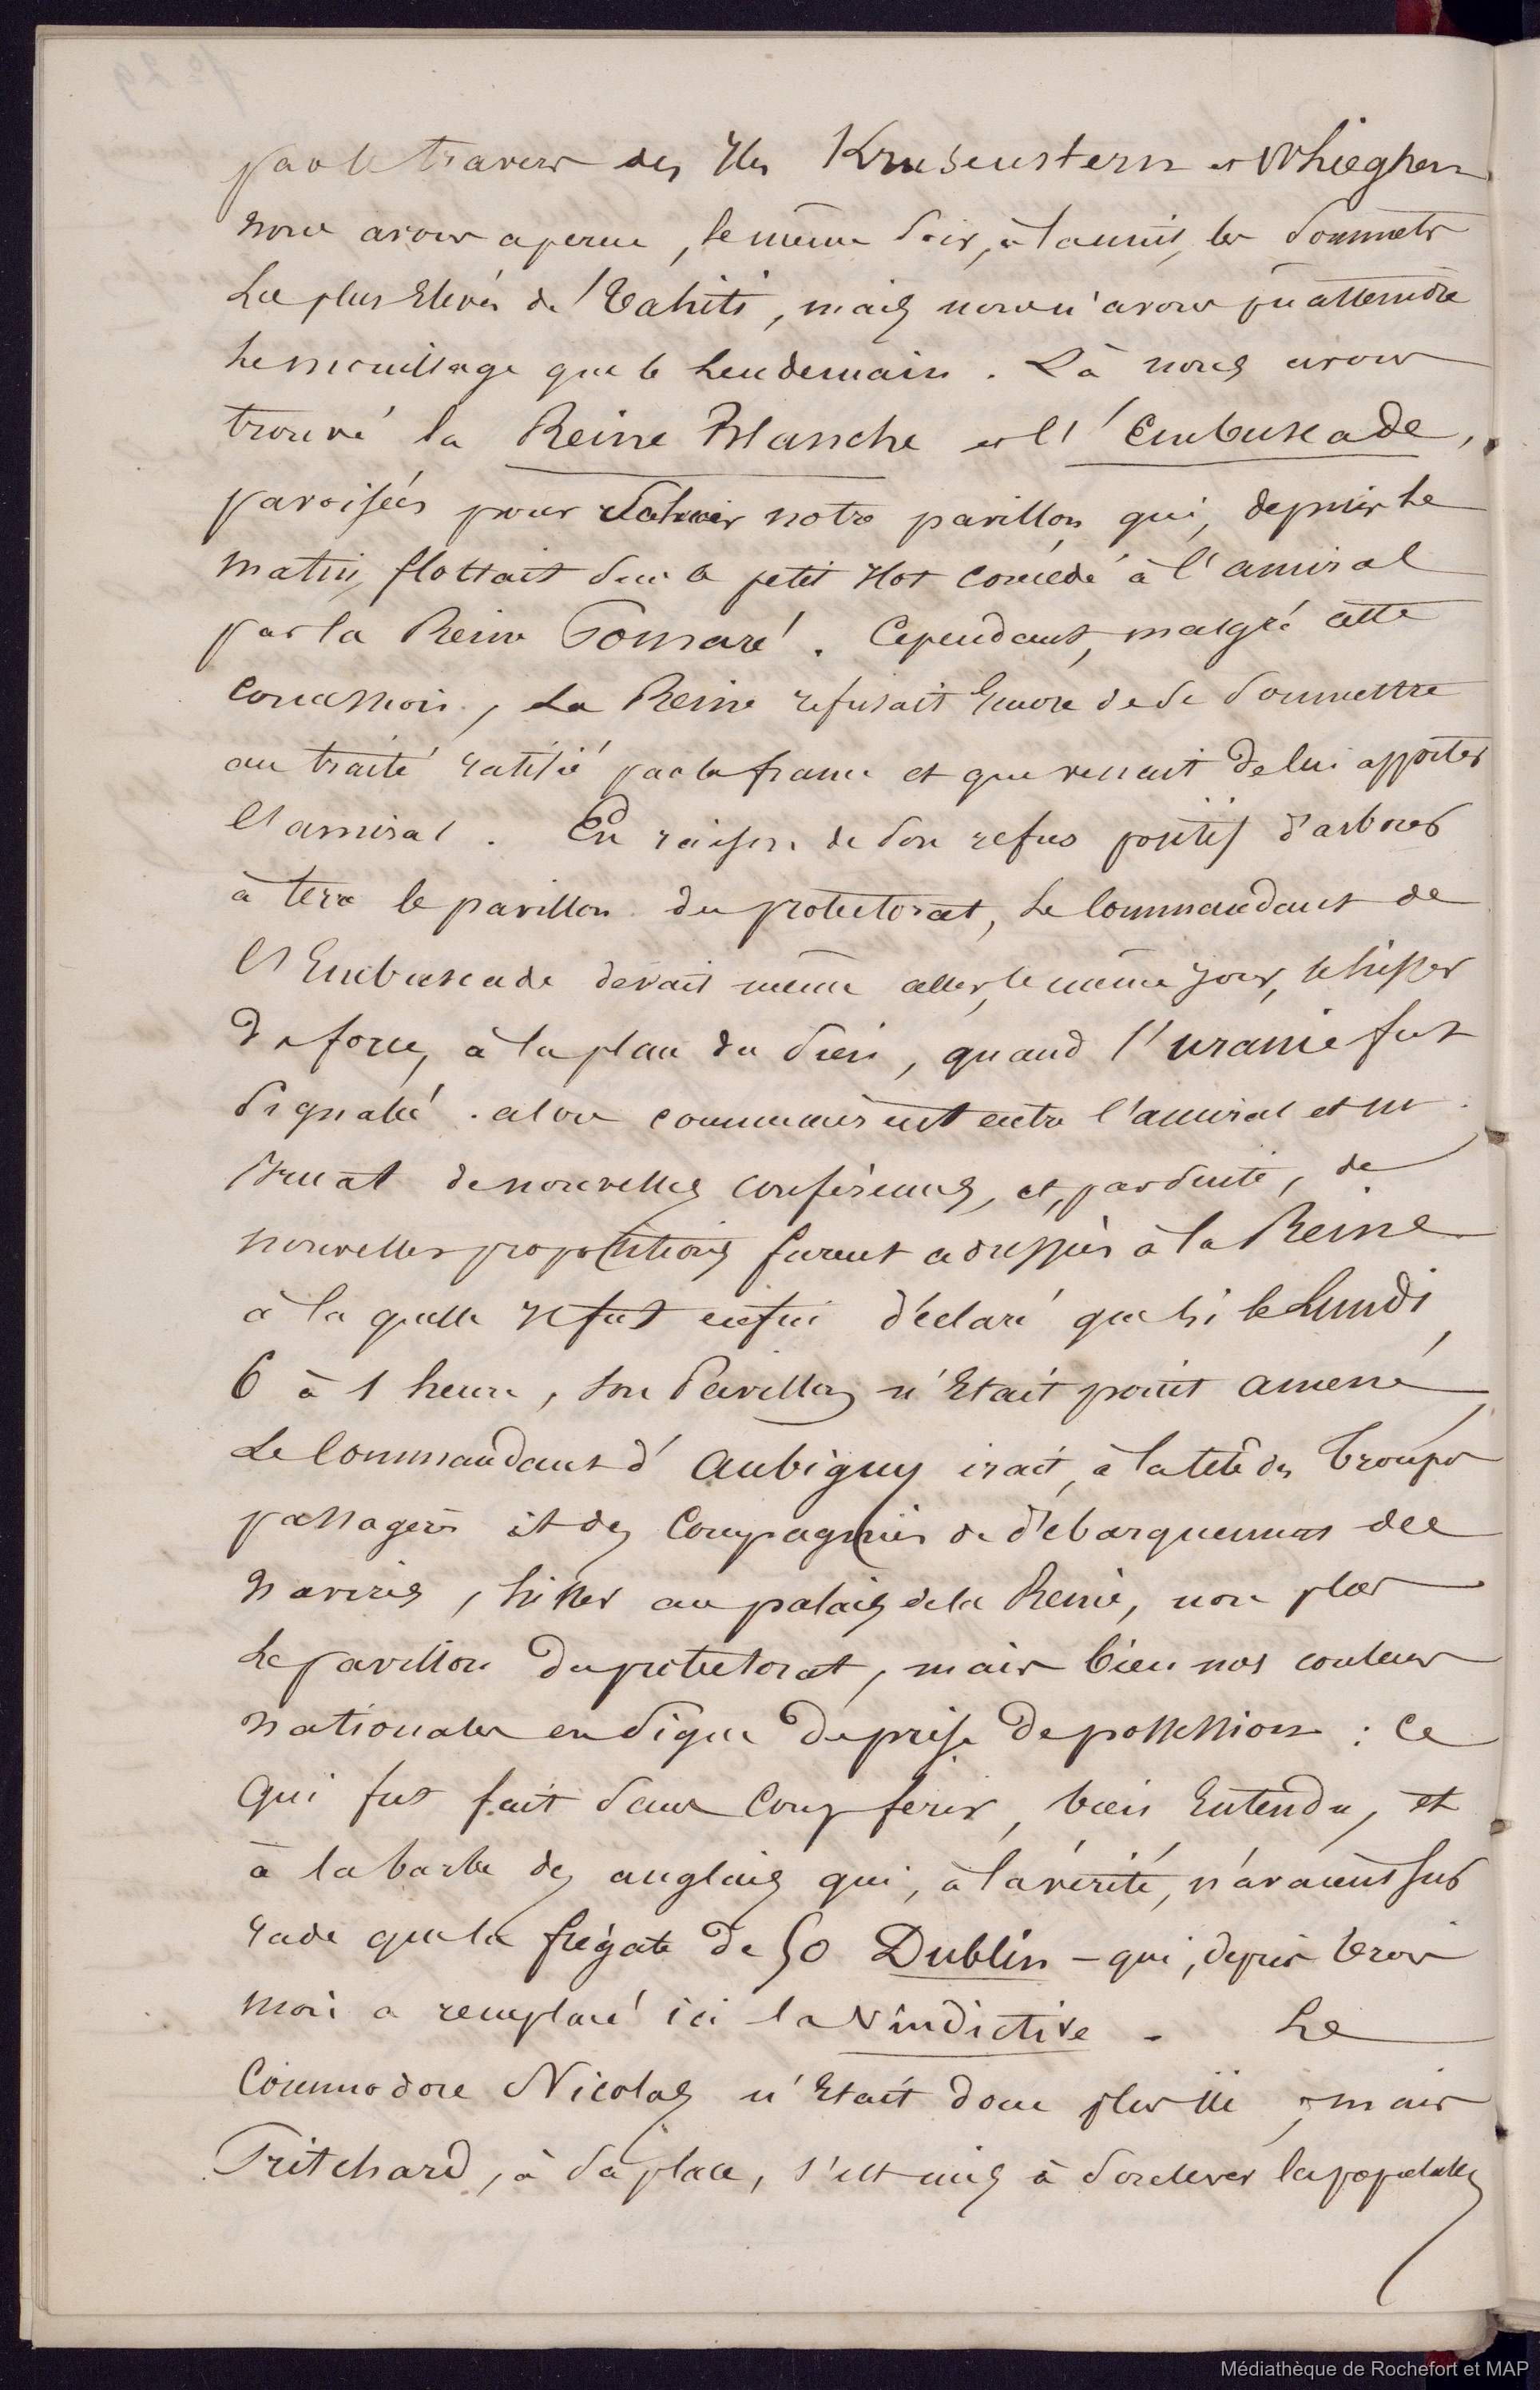 par le travers des Iles Krusenstern et Whieghen
nous avons aperçu, le même soir, à la nuit, les sommets
Les plus Elevés de Tahiti, mais nous n'avons pu atteindre
Le mouillage que le Lendemain. Là nous avons
trouvé la Reine Blanche et l'Embuscade,
pavoisées pour saluer notre pavillon qui, depuis le
matin, flottait sur le petit Ilot concédé à l'amiral
par la Reine Pomaré. Cependant, malgré cette
concession, La Reine refusait Encore de se soumettre
au traité ratifié par la france et que venait de lui apporter
l'amiral. En raison de son refus positif d'arborer
à terre le pavillon du protectorat, Le Commandant de
l'Embuscade devait même aller, le même jour, le hisser
de force, à la place du sien, quand l'uranie fut
signalée. alors commencèrent entre l'amiral et m.
Bruat de nouvelles conférences, et, par suite, de
nouvelles propositions furent adressées à la Reine
à la quelle Il fut enfin déclaré que si le Lundi,
6 à 1 heure, son Pavillon n'Etait point amené,
Le Commandant d'Aubigny irait, à la tête des troupes
passagères et des Compagnies de débarquement des
navires, hisser au palais de la Reine, non plus
Le pavillon du protectorat, mais bien nos couleurs
nationales en signe de prise de possession : Ce
qui fut fait sans Coup férir, bien Entendu, et
à la barbe des anglais qui, à la vérité, n'avaient sur
rade que la frégate de 50 Dublin - qui, depuis trois
mois a remplacé ici la Vindictive - Le
Commodore Nicolas n'Etait donc plus ici, mais
Pritchard, à sa place, s'est mis à soulever les populations